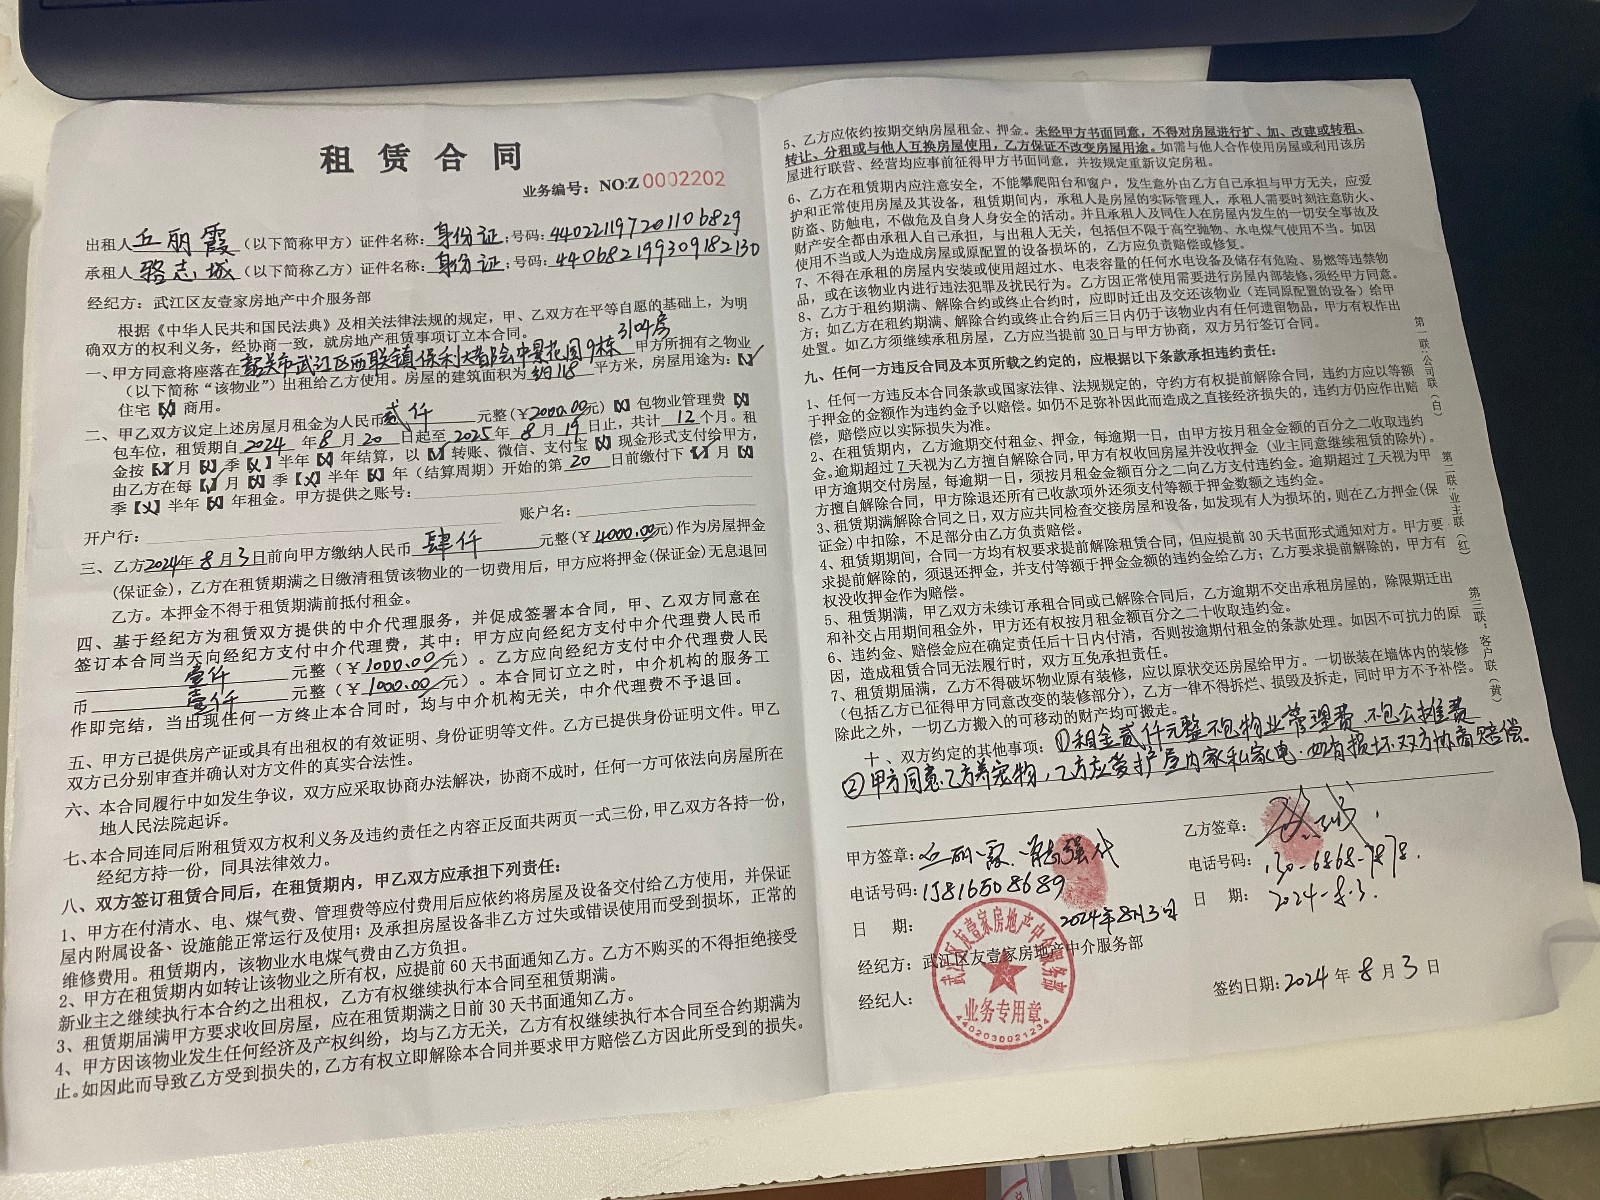 租赁合同
业务编号：NO:Z 0002202
出租人 丘丽霞 （以下简称甲方）证件名称：身份证；号码：440221197201106829
承租人 骆志城 （以下简称乙方）证件名称：身份证；号码：440682199309182130
经纪方：武江区友壹家房地产中介服务部
根据《中华人民共和国民法典》及相关法律法规的规定，甲、乙双方在平等自愿的基础上，为明
确双方的权利义务，经协商一致，就房地产租赁事项订立本合同。 3104房
一、甲方同意将座落在 韶关市武江区西联镇保利大都会中景花园9栋 甲方所拥有之物业
（以下简称“该物业”）出租给乙方使用。房屋的建筑面积为 约118 平方米，房屋用途为：【✓】
住宅【×】商用。
二、甲乙双方议定上述房屋月租金为人民币 贰仟 元整（￥2000.00元）【×】包物业管理费【×】
包车位，租赁期自 2024 年 8 月 20 日起至 2025 年 8 月 19 日止，共计 12 个月。租
金按【✓】月【×】季【×】半年【×】年结算，以【×】转账、微信、支付宝【×】现金形式支付给甲方，
由乙方在每【✓】月【×】季【×】半年【×】年（结算周期）开始的第 20 日前缴付下【✓】月【×】
季【×】半年【×】年租金。甲方提供之账号：
开户行： 账户名：
三、乙方2024年 8 月 3 日前向甲方缴纳人民币 肆仟 元整（￥4000.00元）作为房屋押金
（保证金），乙方在租赁期满之日缴清租赁该物业的一切费用后，甲方应将押金（保证金）无息退回
乙方。本押金不得于租赁期满前抵付租金。
四、基于经纪方为租赁双方提供的中介代理服务，并促成签署本合同，甲、乙双方同意在
签订本合同当天向经纪方支付中介代理费，其中：甲方应向经纪方支付中介代理费人民币
壹仟 元整（￥1000.00元）。乙方应向经纪方支付中介代理费人民
币 壹仟 元整（￥1000.00元）。本合同订立之时，中介机构的服务工
作即完结，当出现任何一方终止本合同时，均与中介机构无关，中介代理费不予退回。
五、甲方已提供房产证或具有出租权的有效证明、身份证明等文件。乙方已提供身份证明文件。甲乙
双方已分别审查并确认对方文件的真实合法性。
六、本合同履行中如发生争议，双方应采取协商办法解决，协商不成时，任何一方可依法向房屋所在
地人民法院起诉。
七、本合同连同后附租赁双方权利义务及违约责任之内容正反面共两页一式三份，甲乙双方各持一份，
经纪方持一份，同具法律效力。
八、双方签订租赁合同后，在租赁期内，甲乙双方应承担下列责任：
1、甲方在付清水、电、煤气费、管理费等应付费用后应依约将房屋及设备交付给乙方使用，并保证
屋内附属设备、设施能正常运行及使用；及承担房屋设备非乙方过失或错误使用而受到损坏，正常的
维修费用。租赁期内，该物业水电煤气费由乙方负担。
2、甲方在租赁期内如转让该物业之所有权，应提前 60 天书面通知乙方。乙方不购买的不得拒绝接受
新业主之继续执行本合约之出租权，乙方有权继续执行本合同至租赁期满。
3、租赁期届满甲方要求收回房屋，应在租赁期满之日前 30 天书面通知乙方。
4、甲方因该物业发生任何经济及产权纠纷，均与乙方无关，乙方有权继续执行本合同至合约期满为
止。如因此而导致乙方受到损失的，乙方有权立即解除本合同并要求甲方赔偿乙方因此所受到的损失。
5、乙方应依约按期交纳房屋租金、押金。未经甲方书面同意，不得对房屋进行扩、加、改建或转租、
转让、分租或与他人互换房屋使用，乙方保证不改变房屋用途。如需与他人合作使用房屋或利用该房
屋进行联营、经营均应事前征得甲方书面同意，并按规定重新议定房租。
6、乙方在租赁期内应注意安全，不能攀爬阳台和窗户，发生意外由乙方自己承担与甲方无关，应爱
护和正常使用房屋及其设备，租赁期间内，承租人是房屋的实际管理人，承租人需要时刻注意防火、
防盗、防触电，不做危及自身人身安全的活动。并且承租人及同住人在房屋内发生的一切安全事故及
财产安全都由承租人自己承担，与出租人无关，包括但不限于高空抛物、水电煤气使用不当。如因
使用不当或人为造成房屋或原配置的设备损坏的，乙方应负责赔偿或修复。
7、不得在承租的房屋内安装或使用超过水、电表容量的任何水电设备及储存有危险、易燃等违禁物
品，或在该物业内进行违法犯罪及扰民行为。乙方因正常使用需要进行房屋内部装修，须经甲方同意。
8、乙方于租约期满、解除合约或终止合约时，应即时迁出及交还该物业（连同原配置的设备）给甲
方；如乙方在租约期满、解除合约或终止合约后三日内仍于该物业内有任何遗留物品，甲方有权作出
处置。如乙方须继续承租房屋，乙方应当提前 30 日与甲方协商，双方另行签订合同。
九、任何一方违反合同及本页所载之约定的，应根据以下条款承担违约责任：
1、任何一方违反本合同条款或国家法律、法规规定的，守约方有权提前解除合同，违约方应以等额
于押金的金额作为违约金予以赔偿。如仍不足弥补因此而造成之直接经济损失的，违约方仍应作出赔
偿，赔偿应以实际损失为准。
2、在租赁期内，乙方逾期交付租金、押金，每逾期一日，由甲方按月租金金额的百分之二收取违约
金。逾期超过 7 天视为乙方擅自解除合同，甲方有权收回房屋并没收押金（业主同意继续租赁的除外）。
甲方逾期交付房屋，每逾期一日，须按月租金金额百分之二向乙方支付违约金。逾期超过 7 天视为甲
方擅自解除合同，甲方除退还所有已收款项外还须支付等额于押金数额之违约金。
3、租赁期满解除合同之日，双方应共同检查交接房屋和设备，如发现有人为损坏的，则在乙方押金（保
证金）中扣除，不足部分由乙方负责赔偿。
4、租赁期期间，合同一方均有权要求提前解除租赁合同，但应提前 30 天书面形式通知对方。甲方要
求提前解除的，须退还押金，并支付等额于押金金额的违约金给乙方；乙方要求提前解除的，甲方有
权没收押金作为赔偿。
5、租赁期满，甲乙双方未续订承租合同或已解除合同后，乙方逾期不交出承租房屋的，除限期迁出
和补交占用期间租金外，甲方还有权按月租金额百分之二十收取违约金。
6、违约金、赔偿金应在确定责任后十日内付清，否则按逾期付租金的条款处理。如因不可抗力的原
因，造成租赁合同无法履行时，双方互免承担责任。
7、租赁期届满，乙方不得破坏物业原有装修，应以原状交还房屋给甲方。一切嵌装在墙体内的装修
（包括乙方已征得甲方同意改变的装修部分），乙方一律不得拆烂、损毁及拆走，同时甲方不予补偿。
除此之外，一切乙方搬入的可移动的财产均可搬走。
十、双方约定的其他事项：①租金贰仟元整不包物业管理费 不包公摊费
②甲方同意乙方养宠物，乙方应爱护屋内家私家电·如有损坏双方协商赔偿。
甲方签章：丘丽霞、 强代
电话号码：13816508689
日 期： 2024年8月3日
经纪方：武江区友壹家房地产中介服务部
经纪人：
乙方签章：
电话号码：130-6868-7878.
日 期：2024-8-3.
签约日期：2024 年 8 月 3 日
武江区友壹家房地产中介服务部
业务专用章
4402030021234
第一联：公司联（白）
第二联：业主联（红）
第三联：客户联（黄）